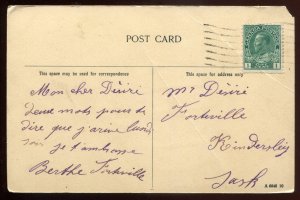 POST CARD
This space may be used for correspondence
This space for address only
Mon cher Désiré
deux mots pour te
dire que j'arrive lundi
soir je t'embrasse
Berthe Fortville
Mr Désiré
Fortville
Kindersley
Sask
1